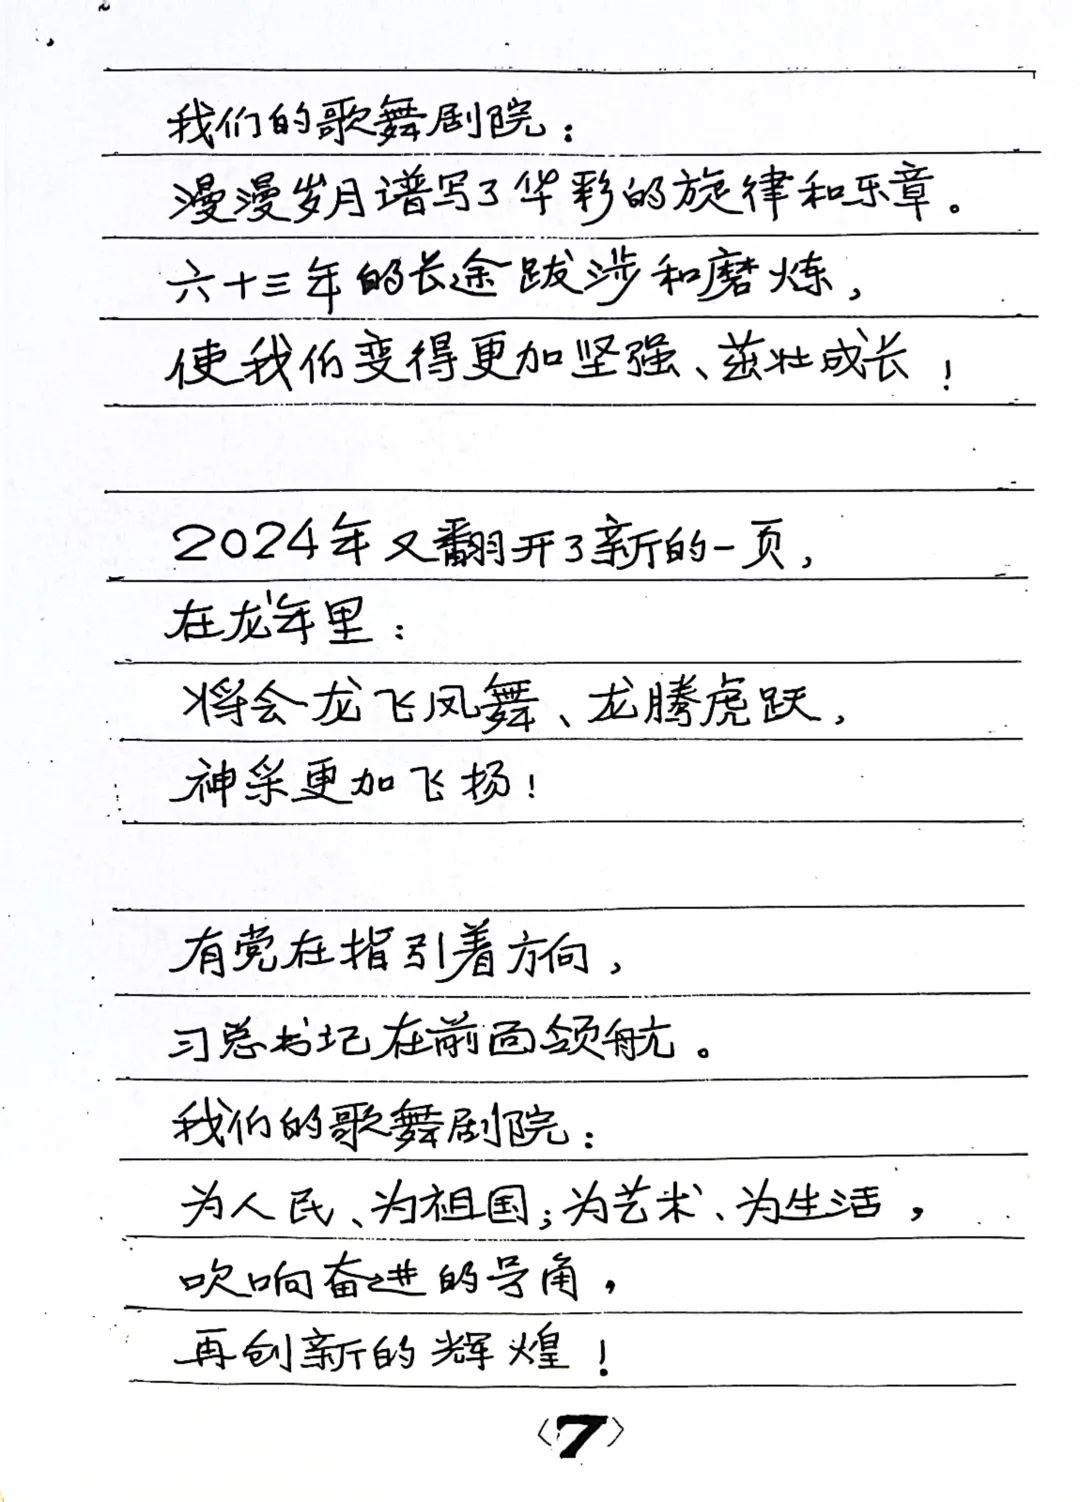 我们的歌舞剧院：
漫漫岁月谱写了华彩的旋律和乐章。
六十三年的长途跋涉和磨炼，
使我们变得更加坚强、茁壮成长！
2024年又翻开了新的一页，
在龙年里：
将会龙飞凤舞、龙腾虎跃，
神采更加飞扬！
有党在指引着方向，
习总书记在前面领航。
我们的歌舞剧院：
为人民、为祖国；为艺术、为生活，
吹响奋进的号角，
再创新的辉煌！
〈7〉